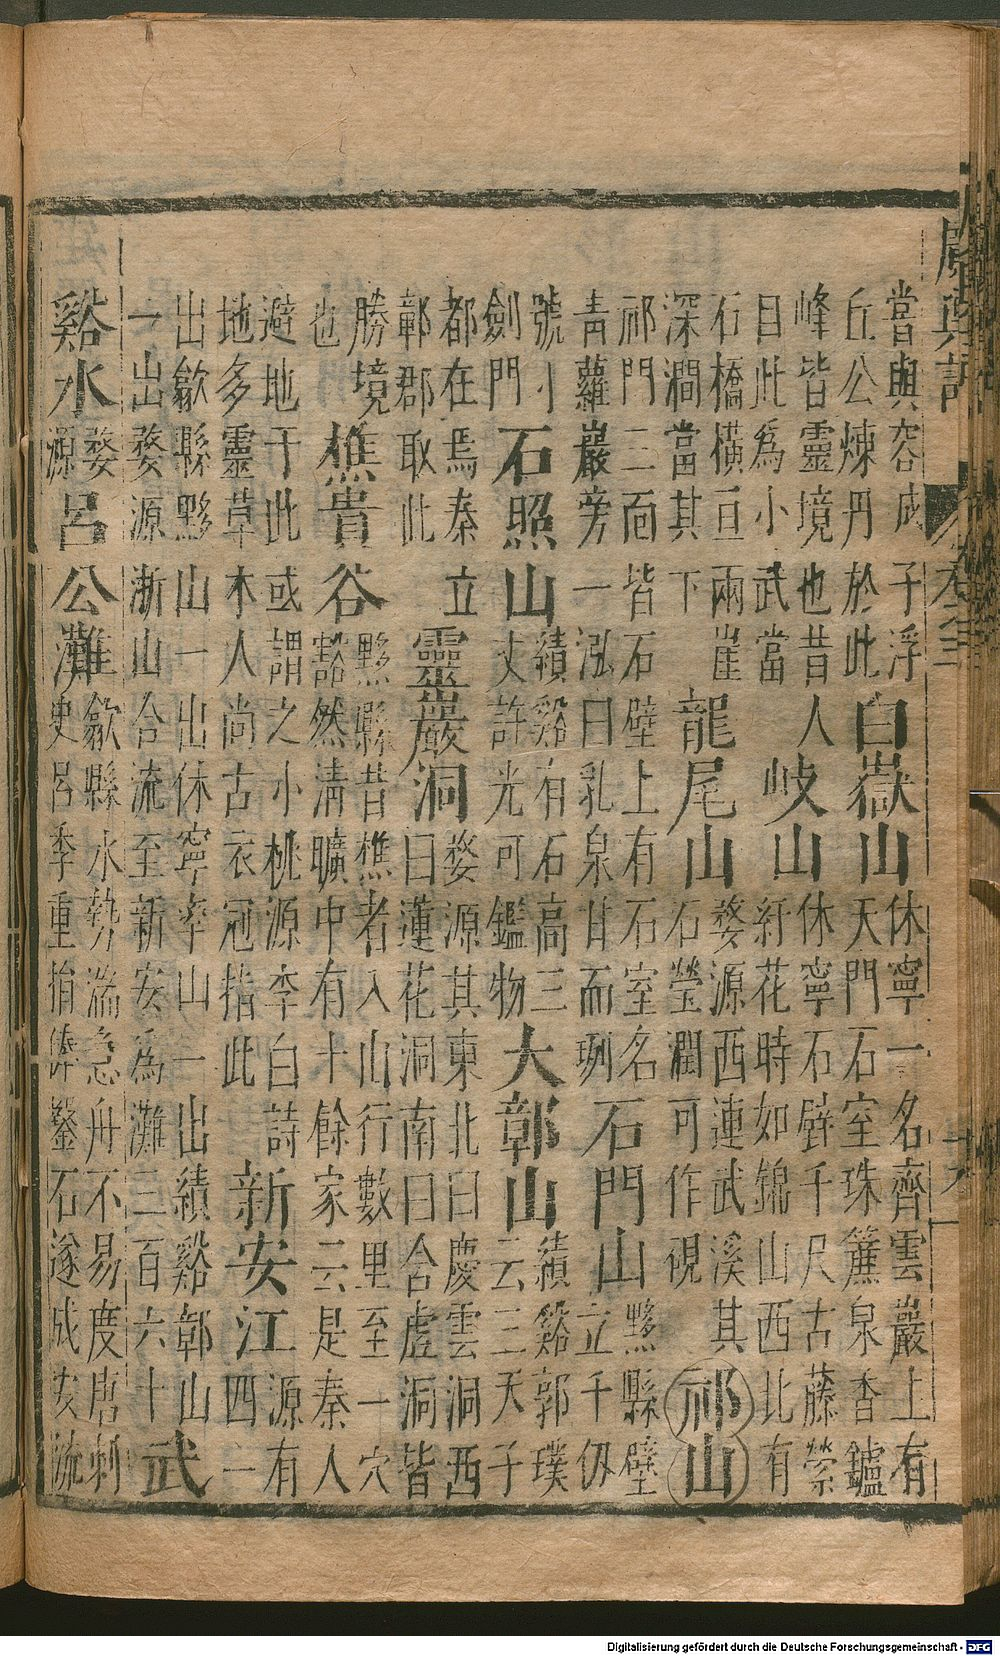 廣輿記 卷之三
嘗與容成子浮
丘公煉丹於此
白嶽山
休寧一名齊雲巖上有
天門石室珠簾泉香鑪
峰皆靈境也昔人
目此為小武當
岐山
休寧石壁千尺古藤縈
紆花時如錦山西北有
石橋橫亘兩崖
深澗當其下
龍尾山
婺源西連武溪其
石瑩潤可作硯
祁山
祁門三面皆石壁上有石室名
青蘿巖旁一泓曰乳泉甘而冽
石門山
黟縣壁
立千仭
號小
劍門
石照山
績谿有石高三
丈許光可鑑物
大鄣山
績谿郭璞
云三天子
都在焉秦立
鄣郡取此
靈巖洞
婺源其東北曰慶雲洞西
曰蓮花洞南曰含虛洞皆
勝境
也
樵貴谷
黟縣昔樵者入山行數里至一穴
豁然清曠中有十餘家云是秦人
避地于此或謂之小桃源李白詩
地多靈草木人尚古衣冠指此
新安江
源有
四一
出歙縣黟山一出休寧率山一出績谿鄣山
一出婺源浙山合流至新安為灘三百六十
武
谿水
婺
源
呂公灘
歙縣水勢湍急舟不易度唐刺
史呂季重捐俸鑿石遂成安流
Digitalisierung gefördert durch die Deutsche Forschungsgemeinschaft - DFG